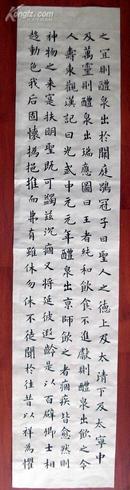 之冝則醴泉出於闕庭鶡冠子曰聖人之德上及太清下及太寧中
及萬靈則醴泉出瑞應圖曰王者純和飲食不貢獻則醴泉出飲之令
人壽東觀漢記曰光武中元元年醴泉出京師飲之者痼疾皆愈然則
神物之来寔扶明聖既可蠲兹沉痼又将延彼遐齡是以百辟卿士相
趍動色我后固懷撝挹推而弗有雖休勿休不徒聞於往昔以祥為懼